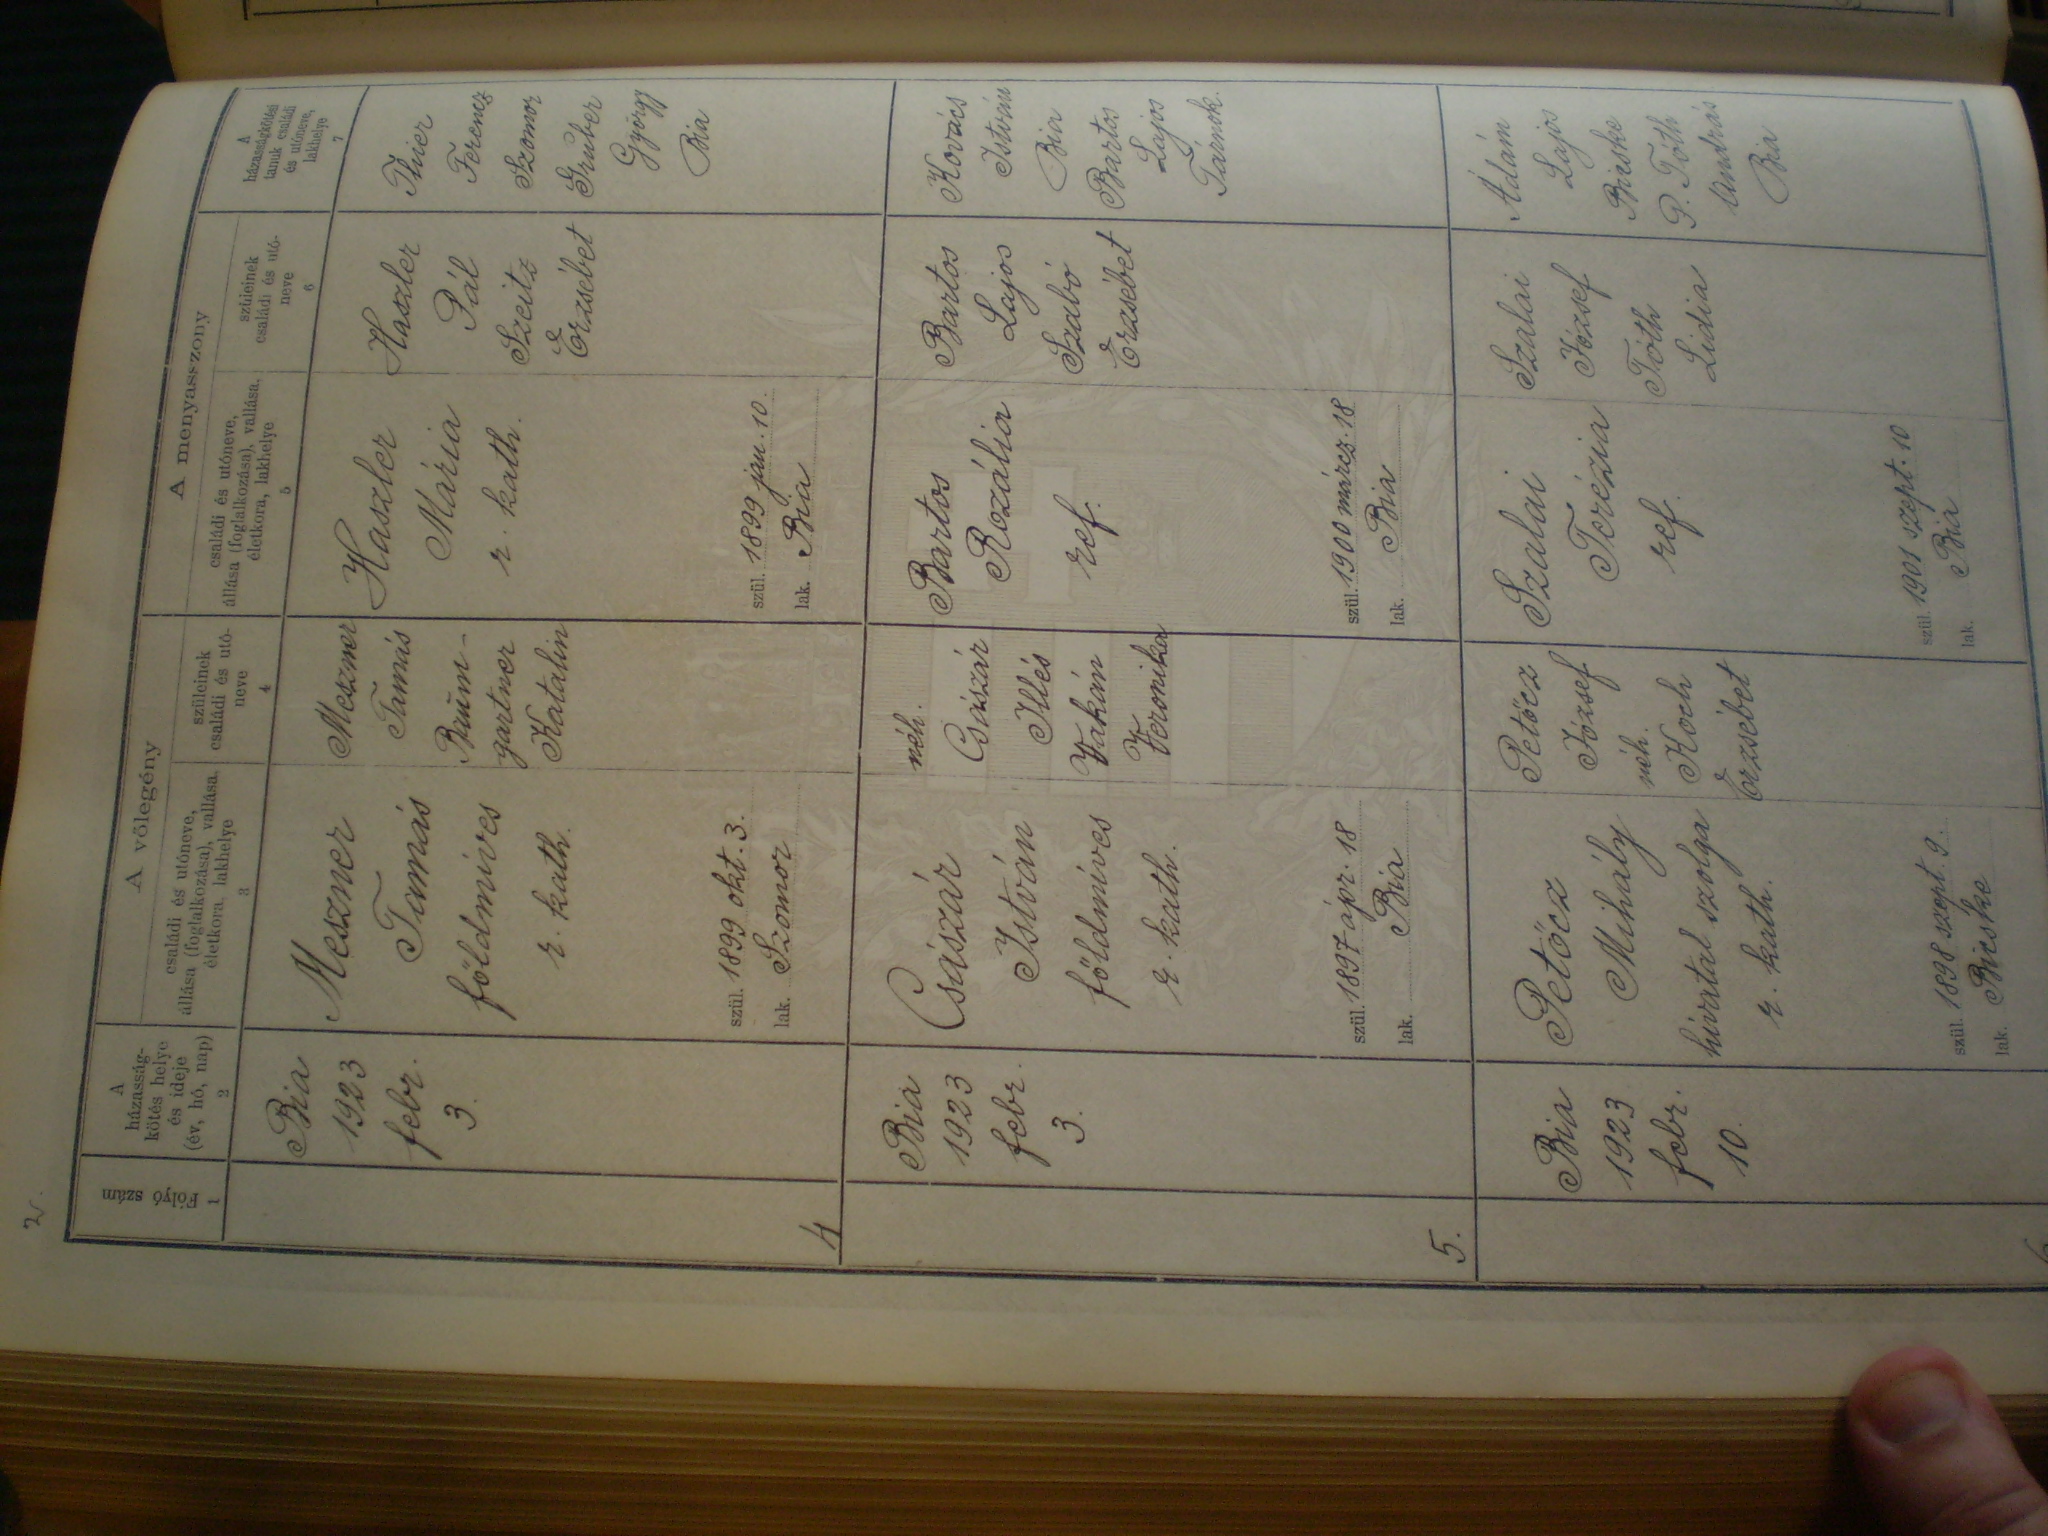 2.
Folyó szám
1
A
házasság-
kötés helye
és ideje
(év, hó, nap)
2
A vőlegény
családi és utóneve,
állása (foglalkozása), vallása,
életkora, lakhelye
3
szüleinek
családi és utó-
neve
4
A menyasszony
családi és utóneve,
állása (foglalkozása), vallása,
életkora, lakhelye
5
szüleinek
családi és utó-
neve
6
A
házasságkötési
tanuk családi
és utóneve,
lakhelye
7
4
Bia
1923
febr.
3.
Meszner
Tamás
földmíves
r. kath.
szül. 1899 okt. 3.
lak. Szomor
Meszner
Tamás
Baum-
gartner
Katalin
Haszler
Mária
r. kath.
szül. 1899 jan. 10.
lak. Bia
Haszler
Pál
Szeitz
Erzsébet
Thier
Ferencz
Szomor
Gruber
György
Bia
5.
Bia
1923
febr.
3.
Császár
István
földmíves
r. kath.
szül. 1897 ápr. 18
lak. Bia
néh.
Császár
Illés
Vakán
Veronika
Bartos
Rozália
ref.
szül. 1900 márcz. 18
lak. Bia
Bartos
Lajos
Szabó
Erzsébet
Kovács
István
Bia
Bartos
Lajos
Tárnok.
Bia
1923
febr.
10.
Petőcz
Mihály
hivatal szolga
r. kath.
szül. 1898 szept. 9.
lak. Bicske
Petőcz
József
néh.
Koch
Erzsébet
Szalai
Terézia
ref.
szül. 1901 szept. 10
lak. Bia
Szalai
József
Tóth
Lidia
Ádám
Lajos
Bicske
P. Tóth
András
Bia